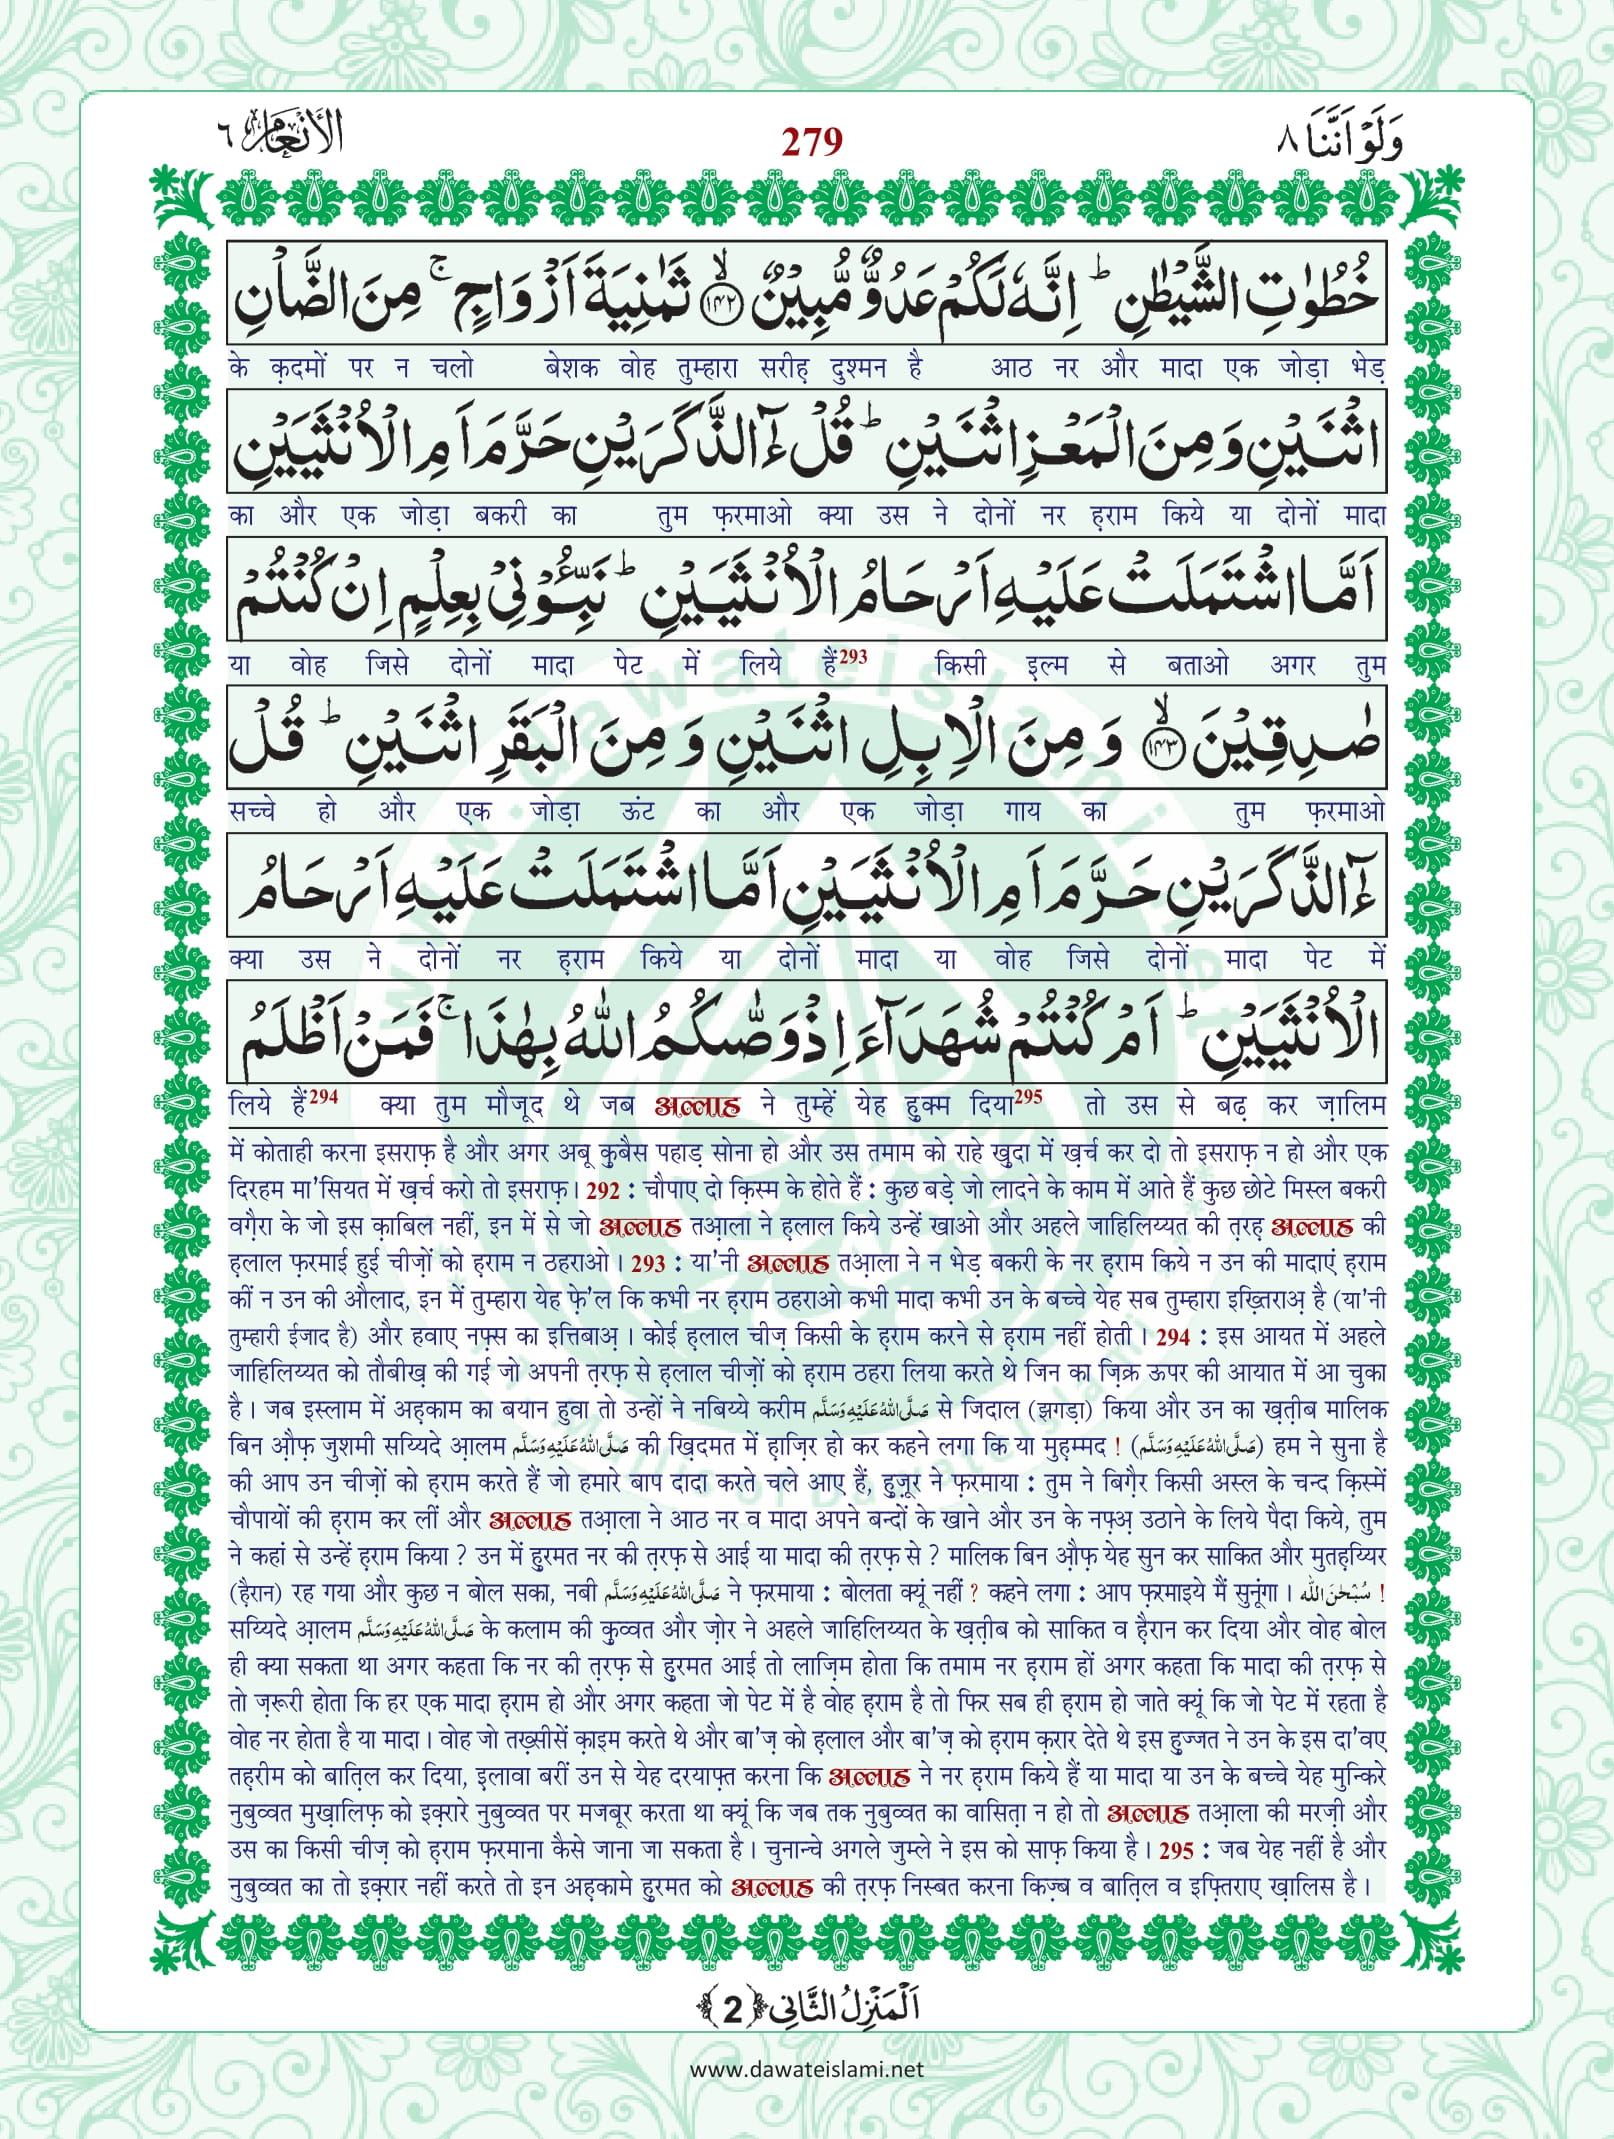 وَلَوْ اَنَّنَا ٨
279
الأنعام ٦
خُطُوٰتِ الشَّيْطٰنِ ؕ اِنَّهٗ لَكُمْ عَدُوٌّ مُّبِيْنٌ ۙ﴿۱۴۲﴾ ثَمٰنِيَةَ اَزْوَاجٍ ۚ مِنَ الضَّاْنِ
के क़दमों पर न चलो बेशक वोह तुम्हारा सरीह़ दुश्मन है आठ नर और मादा एक जोड़ा भेड़
اثْنَيْنِ وَمِنَ الْمَعْزِ اثْنَيْنِ ؕ قُلْ ءٰٓالذَّكَرَيْنِ حَرَّمَ اَمِ الْاُنْثَيَيْنِ
का और एक जोड़ा बकरी का तुम फ़रमाओ क्या उस ने दोनों नर ह़राम किये या दोनों मादा
اَمَّا اشْتَمَلَتْ عَلَيْهِ اَرْحَامُ الْاُنْثَيَيْنِ ؕ نَبِّـُٔوْنِىْ بِعِلْمٍ اِنْ كُنْتُمْ
या वोह जिसे दोनों मादा पेट में लिये हैं293 किसी इल्म से बताओ अगर तुम
صٰدِقِيْنَ ۙ﴿۱۴۳﴾ وَمِنَ الْاِبِلِ اثْنَيْنِ وَمِنَ الْبَقَرِ اثْنَيْنِ ؕ قُلْ
सच्चे हो और एक जोड़ा ऊंट का और एक जोड़ा गाय का तुम फ़रमाओ
ءٰٓالذَّكَرَيْنِ حَرَّمَ اَمِ الْاُنْثَيَيْنِ اَمَّا اشْتَمَلَتْ عَلَيْهِ اَرْحَامُ
क्या उस ने दोनों नर ह़राम किये या दोनों मादा या वोह जिसे दोनों मादा पेट में
الْاُنْثَيَيْنِ ؕ اَمْ كُنْتُمْ شُهَدَآءَ اِذْ وَصّٰىكُمُ اللّٰهُ بِهٰذَا ۚ فَمَنْ اَظْلَمُ
लिये हैं294 क्या तुम मौजूद थे जब अल्लाह ने तुम्हें येह हुक्म दिया295 तो उस से बढ़ कर ज़ालिम
में कोताही करना इसराफ़ है और अगर अबू क़ुबैस पहाड़ सोना हो और उस तमाम को राहे ख़ुदा में ख़र्च कर दो तो इसराफ़ न हो और एक
दिरहम मा'सियत में ख़र्च करो तो इसराफ़। 292 : चौपाए दो क़िस्म के होते हैं : कुछ बड़े जो लादने के काम में आते हैं कुछ छोटे मिस्ल बकरी
वग़ैरा के जो इस क़ाबिल नहीं, इन में से जो अल्लाह तआ़ला ने ह़लाल किये उन्हें खाओ और अहले जाहिलिय्यत की त़रह़ अल्लाह की
ह़लाल फ़रमाई हुई चीज़ों को ह़राम न ठहराओ। 293 : या'नी अल्लाह तआ़ला ने न भेड़ बकरी के नर ह़राम किये न उन की मादाएं ह़राम
कीं न उन की औलाद, इन में तुम्हारा येह फ़े'ल कि कभी नर ह़राम ठहराओ कभी मादा कभी उन के बच्चे येह सब तुम्हारा इख़्तिराअ़ है (या'नी
तुम्हारी ईजाद है) और हवाए नफ़्स का इत्तिबाअ़। कोई ह़लाल चीज़ किसी के ह़राम करने से ह़राम नहीं होती। 294 : इस आयत में अहले
जाहिलिय्यत को तौबीख़ की गई जो अपनी त़रफ़ से ह़लाल चीज़ों को ह़राम ठहरा लिया करते थे जिन का ज़िक्र ऊपर की आयात में आ चुका
है। जब इस्लाम में अह़काम का बयान हुवा तो उन्हों ने नबिय्ये करीम صَلَّى اللهُ عَلَيْهِ وَسَلَّم से जिदाल (झगड़ा) किया और उन का ख़त़ीब मालिक
बिन औ़फ़ जुशमी सय्यिदे आ़लम صَلَّى اللهُ عَلَيْهِ وَسَلَّم की ख़िदमत में ह़ाज़िर हो कर कहने लगा कि या मुह़म्मद ! (صَلَّى اللهُ عَلَيْهِ وَسَلَّم) हम ने सुना है
की आप उन चीज़ों को ह़राम करते हैं जो हमारे बाप दादा करते चले आए हैं, हुज़ूर ने फ़रमाया : तुम ने बिग़ैर किसी अस्ल के चन्द क़िस्में
चौपायों की ह़राम कर लीं और अल्लाह तआ़ला ने आठ नर व मादा अपने बन्दों के खाने और उन के नफ़्अ़ उठाने के लिये पैदा किये, तुम
ने कहां से उन्हें ह़राम किया ? उन में हुरमत नर की त़रफ़ से आई या मादा की त़रफ़ से ? मालिक बिन औ़फ़ येह सुन कर साकित और मुतह़य्यिर
(हैरान) रह गया और कुछ न बोल सका, नबी صَلَّى اللهُ عَلَيْهِ وَسَلَّم ने फ़रमाया : बोलता क्यूं नहीं ? कहने लगा : आप फ़रमाइये मैं सुनूंगा। سُبْحٰنَ الله !
सय्यिदे आ़लम صَلَّى اللهُ عَلَيْهِ وَسَلَّم के कलाम की क़ुव्वत और ज़ोर ने अहले जाहिलिय्यत के ख़त़ीब को साकित व हैरान कर दिया और वोह बोल
ही क्या सकता था अगर कहता कि नर की त़रफ़ से हुरमत आई तो लाज़िम होता कि तमाम नर ह़राम हों अगर कहता कि मादा की त़रफ़ से
तो ज़रूरी होता कि हर एक मादा ह़राम हो और अगर कहता जो पेट में है वोह ह़राम है तो फिर सब ही ह़राम हो जाते क्यूं कि जो पेट में रहता है
वोह नर होता है या मादा। वोह जो तख़्सीसें क़ाइम करते थे और बा'ज़ को ह़लाल और बा'ज़ को ह़राम क़रार देते थे इस हुज्जत ने उन के इस दा'वए
तह़रीम को बात़िल कर दिया, इलावा बरीं उन से येह दरयाफ़्त करना कि अल्लाह ने नर ह़राम किये हैं या मादा या उन के बच्चे येह मुन्किरे
नुबुव्वत मुख़ालिफ़ को इक़्रारे नुबुव्वत पर मजबूर करता था क्यूं कि जब तक नुबुव्वत का वासित़ा न हो तो अल्लाह तआ़ला की मरज़ी और
उस का किसी चीज़ को ह़राम फ़रमाना कैसे जाना जा सकता है। चुनान्चे अगले जुम्ले ने इस को साफ़ किया है। 295 : जब येह नहीं है और
नुबुव्वत का तो इक़्रार नहीं करते तो इन अह़कामे हुरमत को अल्लाह की त़रफ़ निस्बत करना किज़्ब व बात़िल व इफ़्तिराए ख़ालिस है।
اَلْمَنْزِلُ الثَّانِى ﴿2﴾
www.dawateislami.net